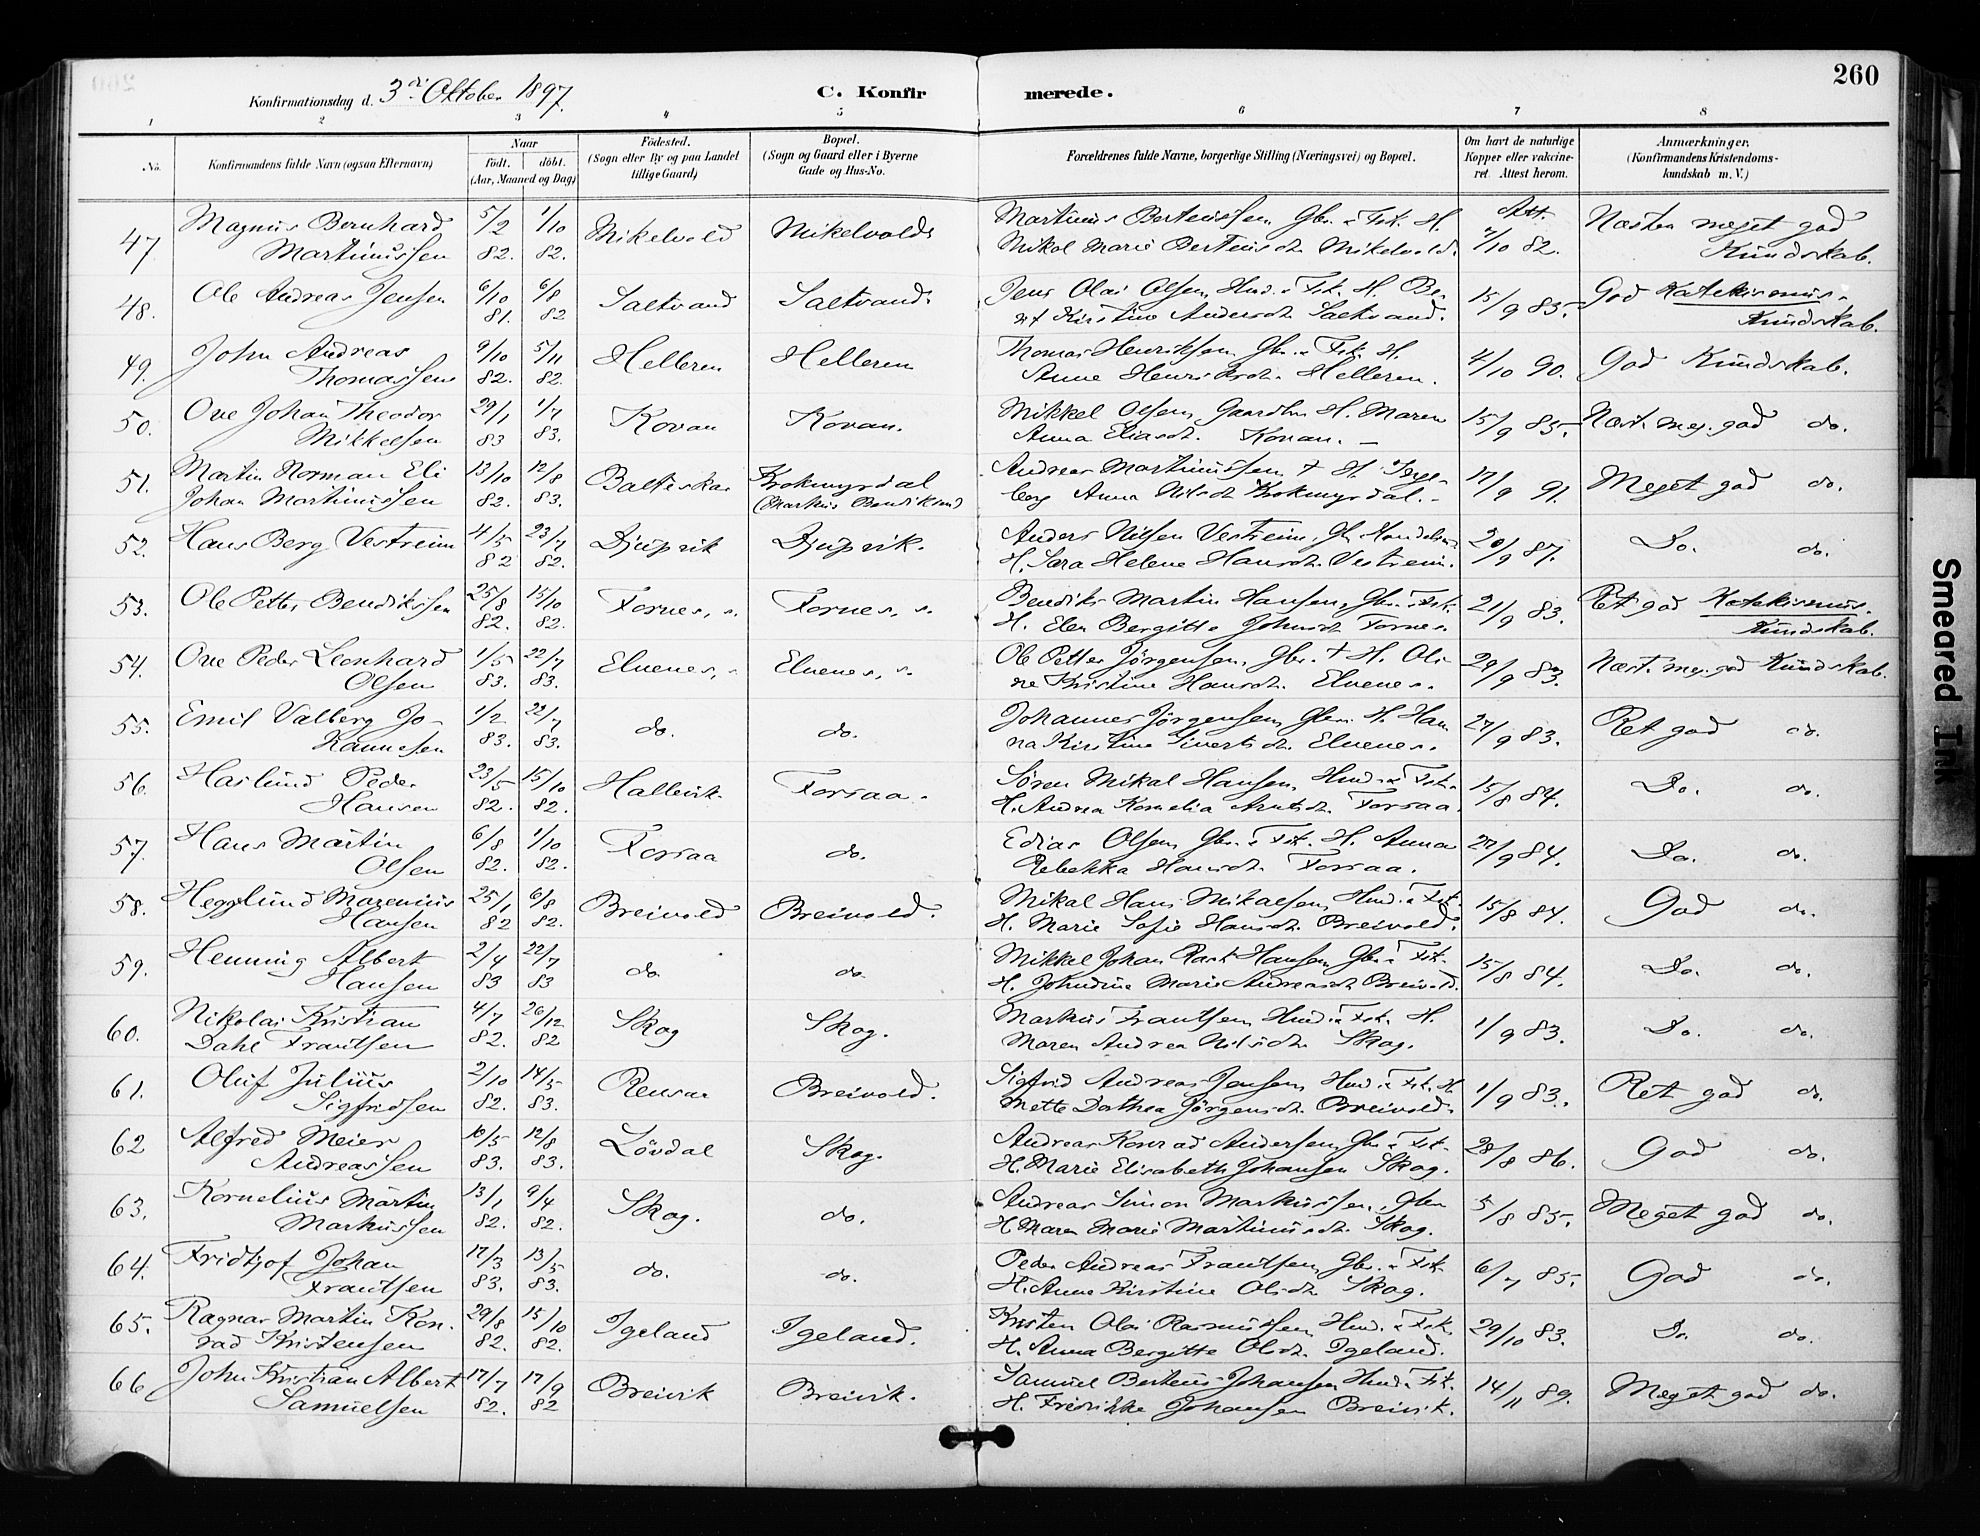 260
Konfirmationsdag d. 3di Oktober 1897.
C. Konfirmerede.
1 2 3 4 5 6 7 8
No.
Konfirmandens fulde Navn (ogsaa Efternavn)
Naar
født. døbt.
(Aar, Maaned og Dag)
Fødested.
(Sogn eller By og paa Landet
tillige Gaard)
Bopæl.
(Sogn og Gaard eller i Byerne
Gade og Hus-No.
Forældrenes fulde Navne, borgerlige Stilling (Næringsvei) og Bopæl.
Om havt de naturlige
Kopper eller vakcine-
ret. Attest herom.
Anmærkninger.
(Konfirmandens Kristendoms-
kundskab m. V.)
47 Magnus Bernhard 5/2 1/10 Mikelvold Mikelvold Martinus Berteussen Gbr. & Fisk. H. Att. Næsten meget god
Martinussen 82. 82. Mikal Marie Berteusdt. Mikelvold. 7/10 82. Kundskab.
48. Ole Andreas Jensen 6/10 6/8 Saltvand Saltvand. Jens Olai Olsen, Hmd. & Fisk. H. Be- 15/9 85. God Katekismus-
81. 82 nt Kirstine Andersdt. Saltvand. Kundskab.
49. John Andreas 9/10 5/11 Helleren Helleren Thomas Henriksen Gbr. & Fisk. H. 4/10 90. God Kundskab.
Thomassen 82. 82. Anne Henriksdt. Helleren.
50. Ove Johan Theodor 29/1 1/7 Kovan Kovan. Mikkel Olsen, Gaardbr. H. Maren 15/9 85. Næst. meg. god do.
Mikkelsen 83 83. Anna Eliasdt. Kovan.
51. Martin Norman Eli 13/10 12/8 Balteskar Krokmyrdal Andreas Martinussen † H. Inge- 17/9 91. Meget god do.
Johan Martinussen 82. 83. (Markus Bendiksen) borg Anna Nilsdt. Krokmyrdal.
52. Hans Berg Vestreim 4/5 23/7 Djupvik Djupvik. Anders Nilsen Vestreim, Gbr. Handelsm. 20/9 87. Do. do.
82 82. H. Sara Helene Hansdt. Vestreim.
53. Ole Petter Bendiksen 25/8 15/10 Fornes, s. Fornes, s. Bendik Martin Hansen, Gbr. & Fisk. 21/9 83. Ret god Katekismus-
82. 82. H. Elen Bergitte Johnsdt. Fornes. Kundskab.
54. Ove Peder Leonhard 1/5 22/7 Elvenes, s. Elvenes, s. Ole Petter Jørgensen, Gbr. † H. Oli- 29/9 83. Næst. meg. god Kundskab.
Olsen 83. 83. ne Kristine Hansdt. Elvenes.
55. Emil Valberg Jo- 1/2 22/7 do. do. Johannes Jørgensen, Gbr. H. Han- 27/9 83. Ret god do.
hannesen 83. 83. na Kirstine Sivertsdt. Elvenes.
56. Haslund Peder 23/5 15/10 Hallevik Forsaa. Søren Mikal Hansen, Hmd. & Fisk. 15/8 84. Do. do.
Hansen 82. 82. H. Andrea Kornelia Arntsdt. Forsaa.
57. Hans Martin 6/8 1/10 Forsaa do. Edias Olsen, Gbr. & Fisk. H. Anna 27/9 84. Do. do.
Olsen 82. 82. Rebekka Hansdt. Forsaa.
58. Hegglund Marenius 25/1 6/8 Breivold Breivold. Mikal Hans Mikalsen, Hmd. & Fisk. 15/8 84. God do.
Hansen 82 82. H. Marie Sofie Hansdt. Breivold.
59. Henning Albert 2/4 22/7 do. do. Mikkel Johan Rast Hansen, Gbr. & Fisk. 15/8 84. Do. do.
Hansen 83 83 H. Johndine Marie Andreasdt. Breivold.
60. Nikolai Kristian 4/7 26/12 Skog Skog. Markus Frantsen Hmd. & Fisk. H. 1/9 83. Do. do.
Dahl Frantsen 82. 82 Maren Andrea Nilsdt. Skog.
61. Oluf Julius 2/10 14/5 Rensaa Breivold. Sigfrid Andreas Jensen, Hmd. & Fisk. H. 1/9 83. Ret god do.
Sigfridsen 82. 83. Mette Dorthea Jørgensdt. Breivold.
62 Alfred Meier 10/5 12/8 Løvdal Skog. Andreas Konrad Andersen, Gbr. & Fisk. 28/8 86. God do.
Andreassen 83. 83. H. Marie Elisabeth Johansen Skog.
63. Kornelius Martin 13/1 9/4 Skog. do. Andreas Simon Markussen, Gbr. 5/8 85. Meget god do.
Markussen 82. 82. H. Maren Marie Martinusdt. Skog.
64. Fridtjof Johan 17/3 13/5 do. do. Peder Andreas Frantsen, Gbr. & Fisk. 6/7 85. God do.
Frantsen 83. 83. H. Anne Kirstine Olsdt. Skog.
65. Ragnar Martin Kon- 29/8 15/10 Igeland Igeland. Kristen Olai Rasmussen, Hmd. & Fisk. 29/10 83. Do. do.
rad Kristensen 82. 82. H. Anna Bergitte Olsdt. Igeland.
66 John Kristian Albert 17/7 17/9 Breivik Breivik. Samuel Berteus Johansen, Hmd. & Fisk. 14/11 89. Meget god do.
Samuelsen 82. 82 H. Fredrikke Johansen Breivik.
Smeared Ink